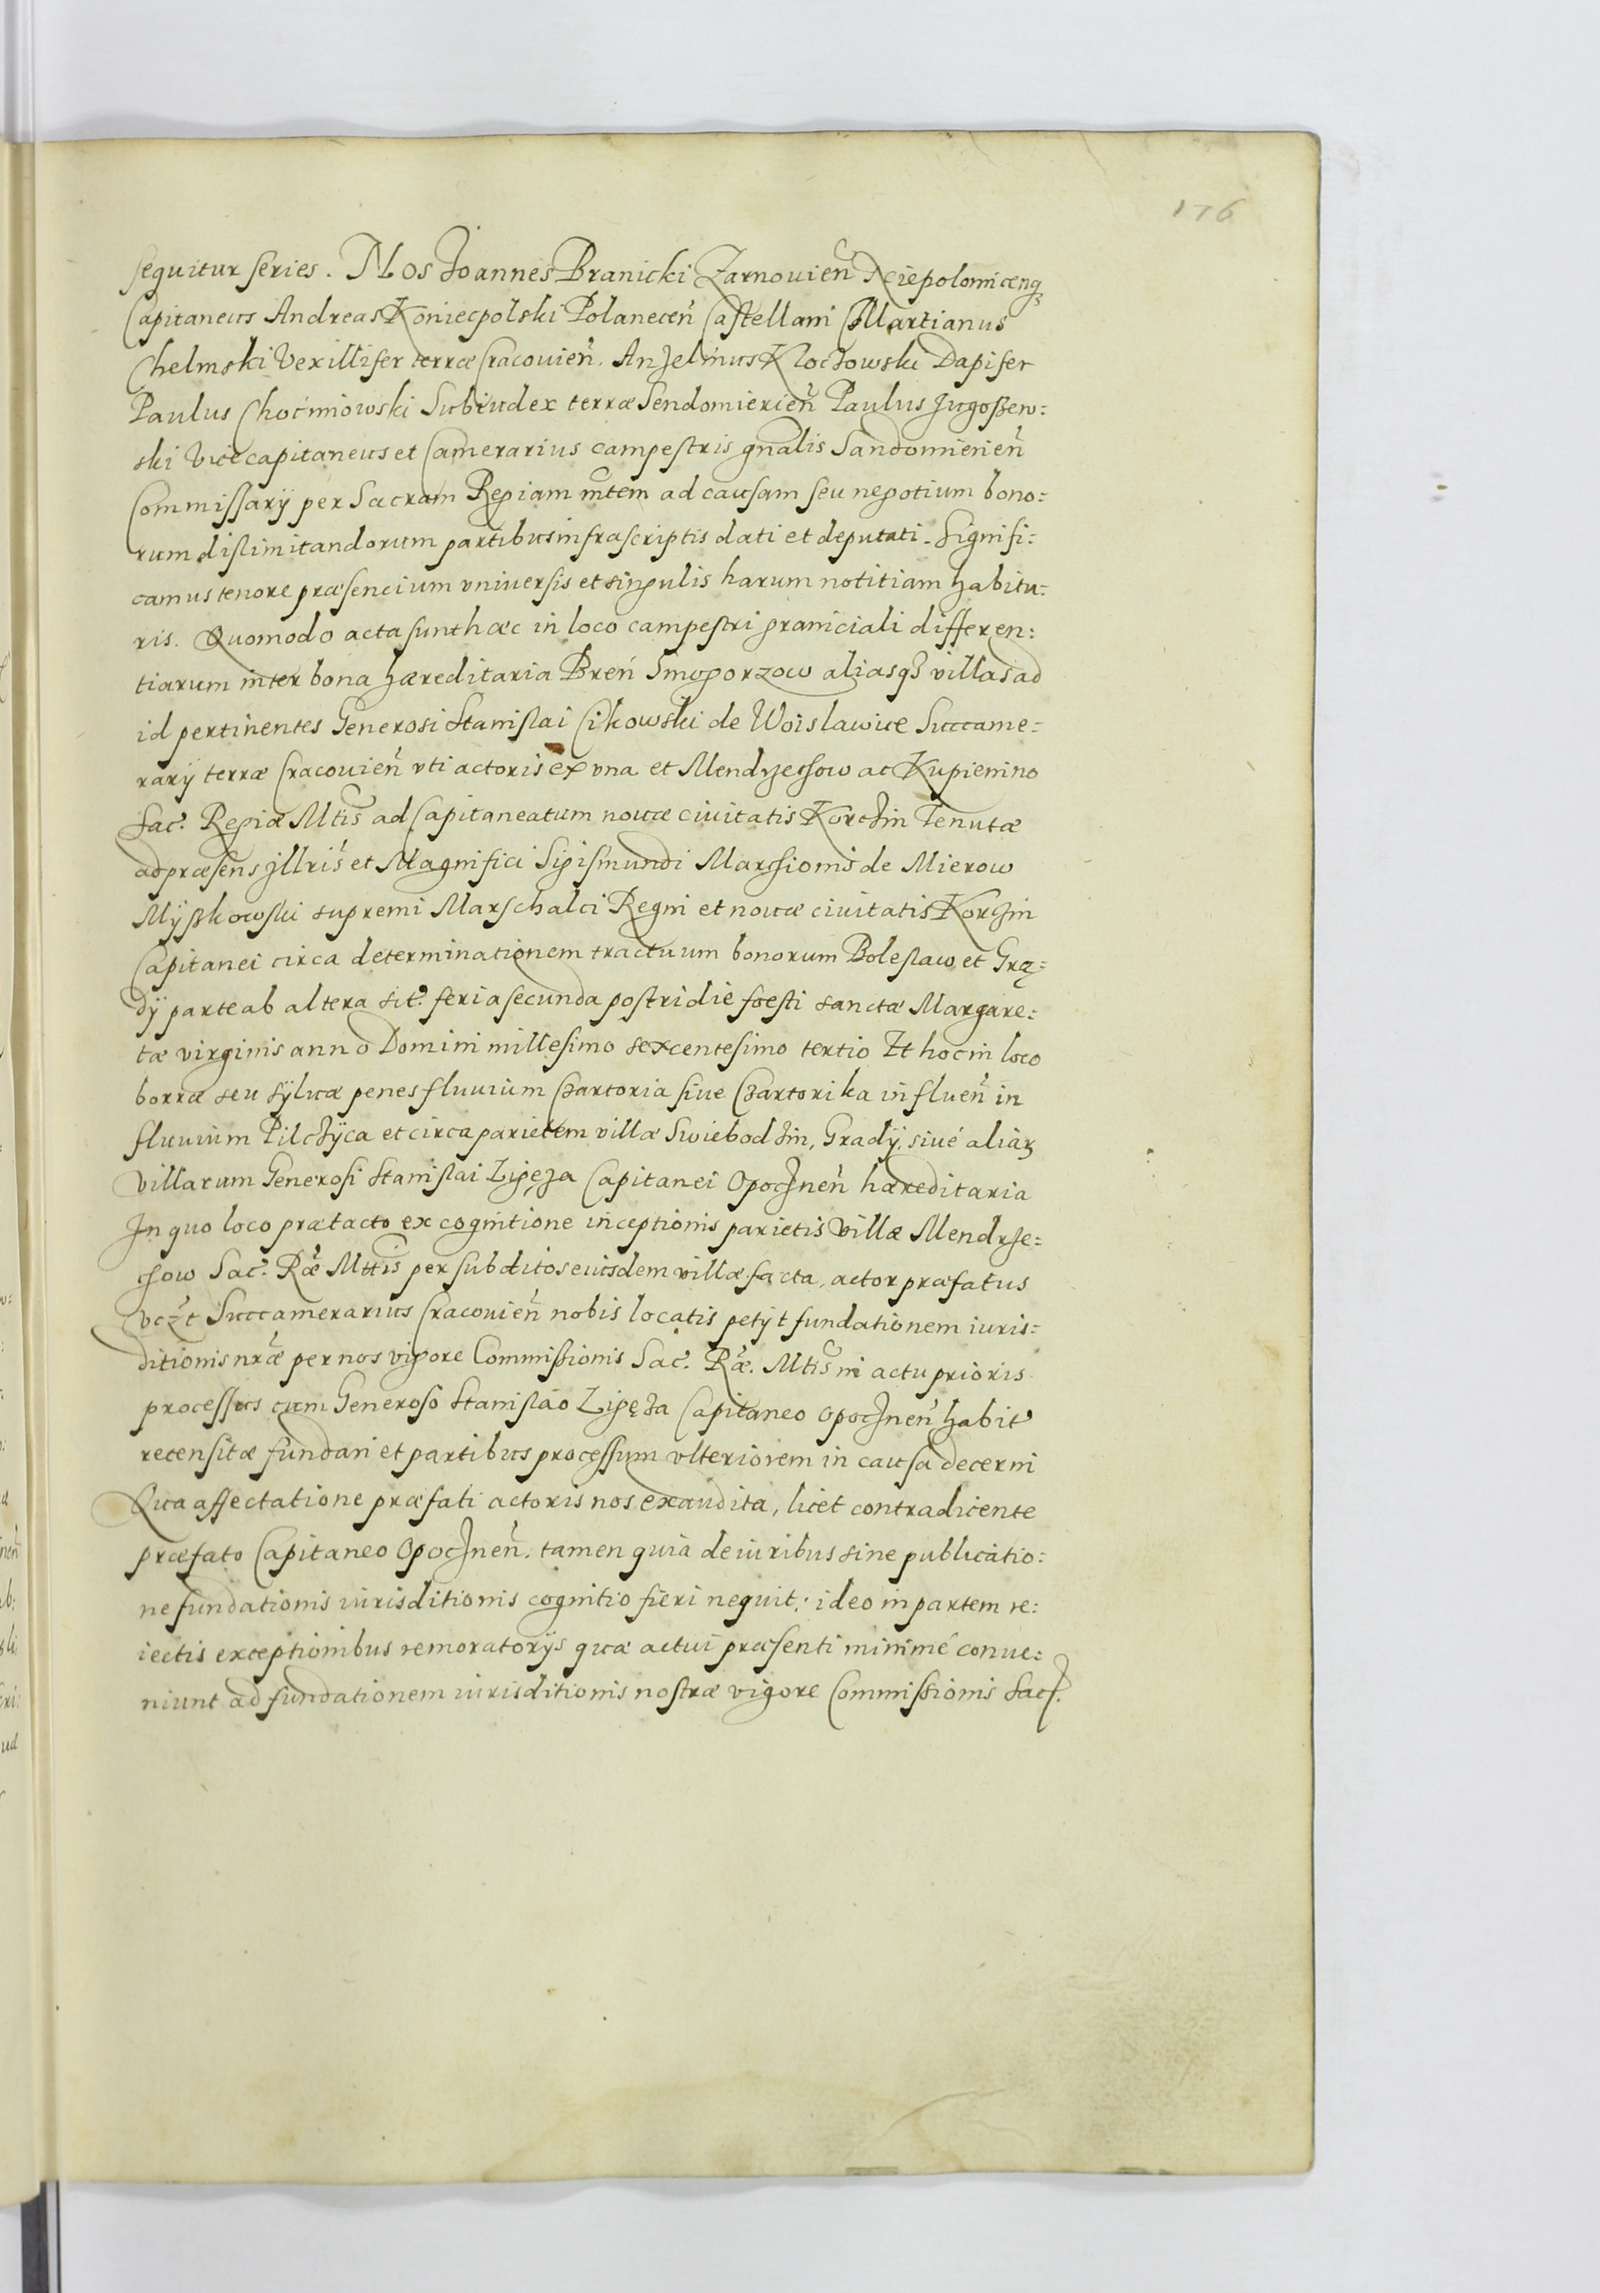 176
sequitur series. Nos Joannes Branicki Zarnovień Niepolomicenq̃
Capitaneus Andreas Koniecpolski Polaneceń Castellani Martianus
Chelmski Vexillifer terræ Cracovień. Anzelmus Kloczowski Dapifer
Paulus Choćmiowski Subiudex terræ Sendomierień Paulus Jugoszew:
ski Vicecapitaneus et Camerarius campestris gñalis Sandomierień
Commissarij per Sacram Regiam mtem ad causam seu negotium bono:
rum dislimitandorum partibus infrascriptis dati et deputati. Signifi:
camus tenore præsencium vniversis et singulis harum notitiam habitu:
ris. Quomodo acta sunt hæc in loco campestri graniciali differen:
tiarum inter bona hæreditaria Breń Smogorzow aliasq̃ villas ad
id pertinentes Generosi Stanislai Cikowski de Woislawice Succame:
rarij terræ Cracovień vti actoris ex vna et Mendrzechow ac Kupienino
Sac. Regiæ Mtis ad Capitaneatum novæ civitatis Korczin Tenutæ
ad præsens Jllris et Magnifici Sigismundi Marchionis de Mierow
Myszkowski supremi Marschalci Regni et novæ civitatis Korczin
Capitanei circa determinationem tractuum bonorum Boleslaw et Grą:
dy parte ab altera sit. feria secunda postridie foesti sanctæ Margare:
tæ virginis anno Domini millesimo sexcentesimo tertio Et hoc in loco
borræ seu sylvæ penes fluvium Czartoria sive Czartorika influeń in
fluvium Pilczÿca et circa parietem villæ Swiebodzin, Gradÿ, sivé aliarz
villarum Generosi Stanislai Ligęza Capitanei Opoczneń hæreditaria
In quo loco prætacto ex cognitione inceptionis parietis Villæ Mendrze:
chow Sac. Ræ Mttis per subditos eiusdem villæ facta, actor præfatus
vczt Succamerarius Cracovień nobis locatis petijt fundationem iuris:
ditionis nræ per nos vigore Commißionis Sac. Ræ. Mtis in actu prioris
processus cum Generoso Stanislao Ligęza Capitaneo Opoczneń habit
recensitæ fundari et partibus processum vlteriorem in causa decerni
Qua affectatione præfati actoris nos exaudita, licet contradicente
præfato Capitaneo Opoczneń. tamen quia de iuribus sine publicatio:
ne fundationis iurisditionis cognitio fieri nequit; ideo in partem re:
iectis exceptionibus remoratorijs quæ actui præsenti minimé conve:
niunt ad fundationem iurisditionis nostræ vigore Commissionis Sac.